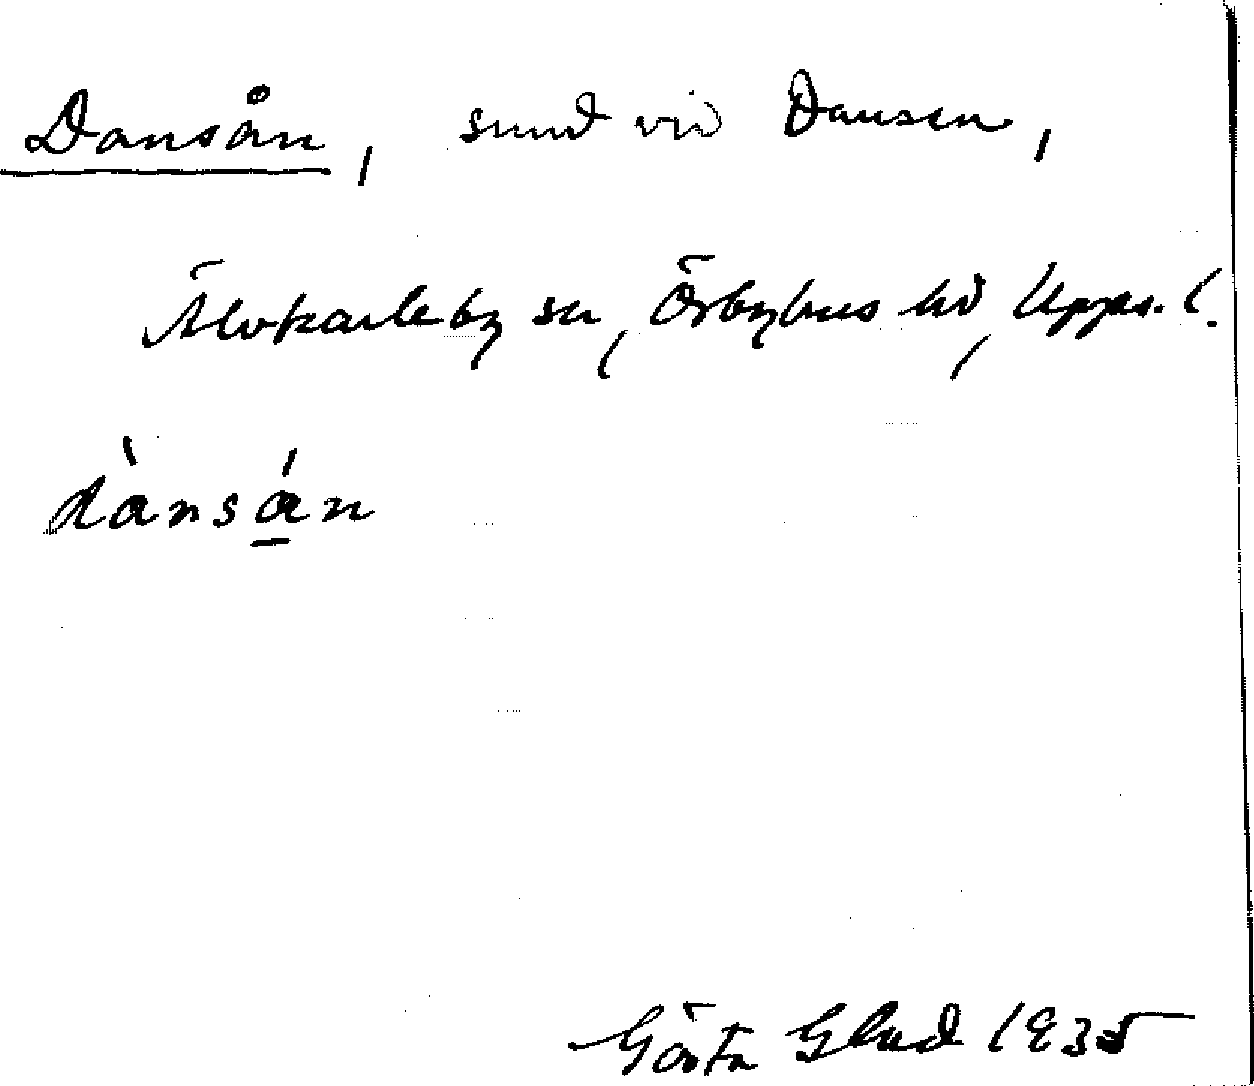 Dansån, sund vid Dansen,
Älvkarleby sn, Örbyhus hd, Upps. l.
dànsán
Gösta Glad 1935